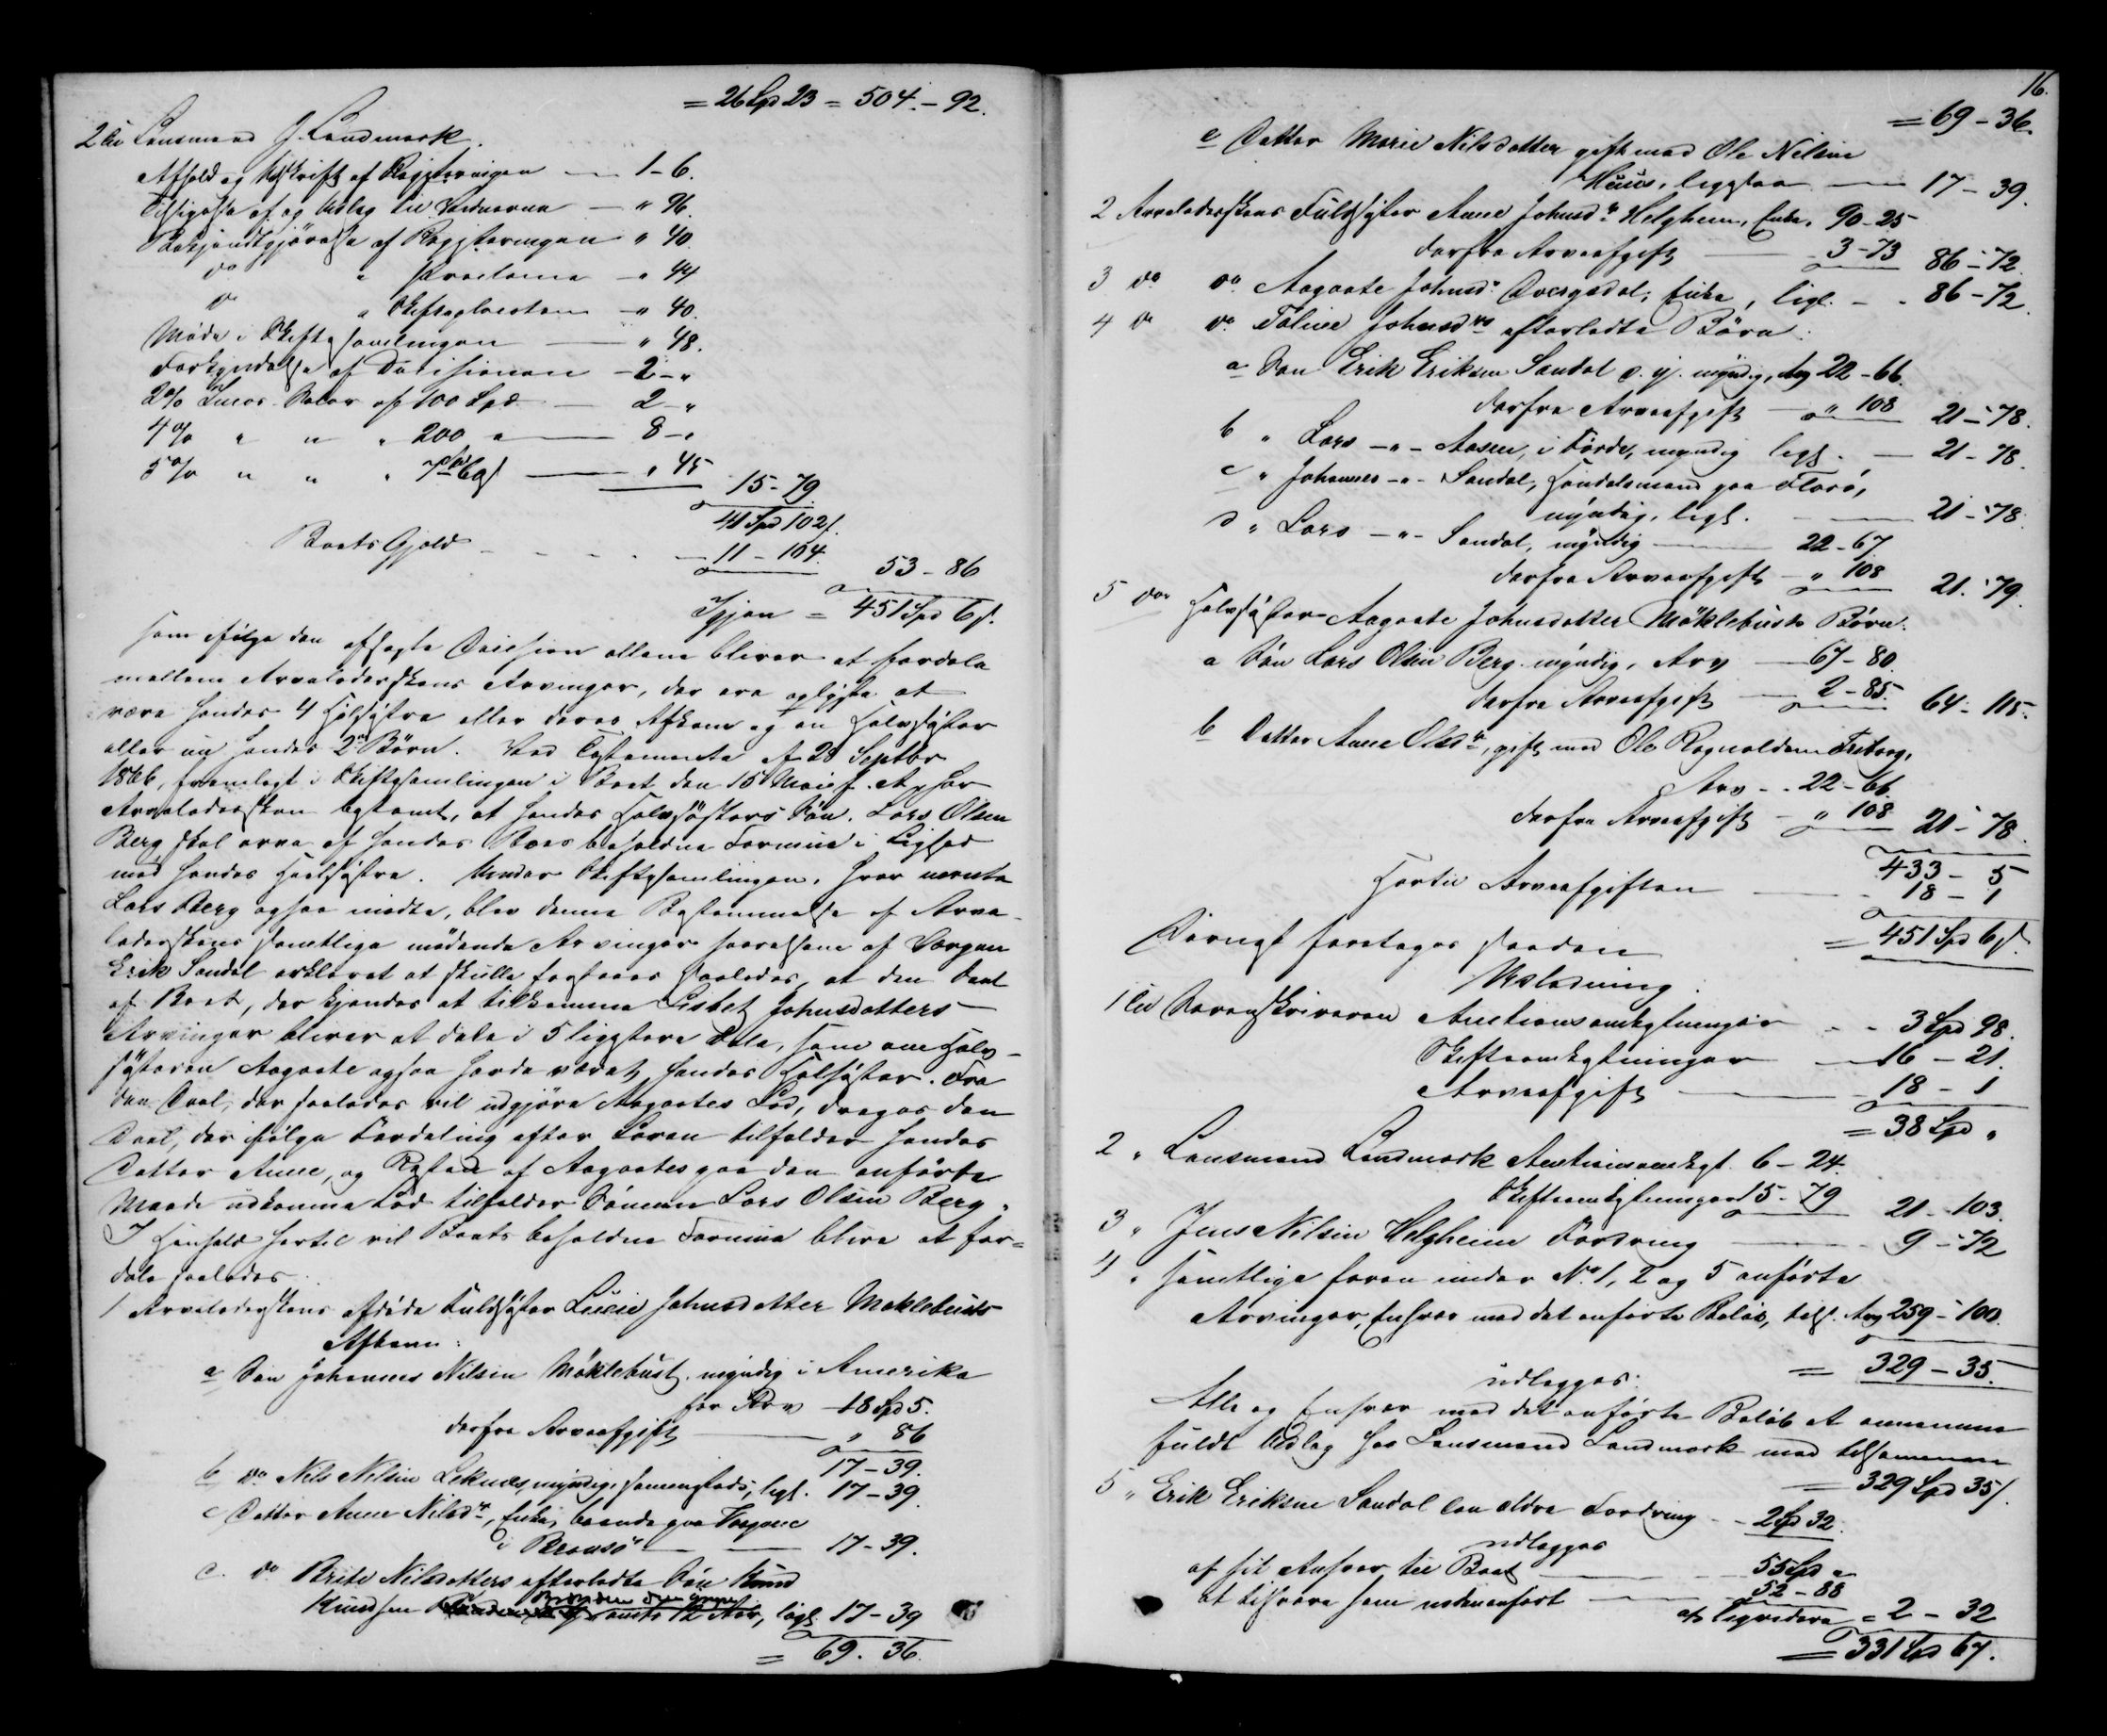 = 26 Spd 23 = 504. - 92.
2 til Lensmand J. Landmark.
Afhold og Udskrift af Registreringen — 1 - 6.
Tilsigelse af og Udlæg til Vidnerne — " 96.
Bekjendtgjørelse af Registreringen " 40.
do " Proclama — " 44
do " Skifteplacaten — " 40.
Møde i Skiftesamlingen — " 48.
Forkyndelse af Decisionen — 2 - "
2 % Incas. Salar af 100 Spd. — 2 - "
4 % " " " 200 " — 8 - "
5 % " " " 7 Spd 6 s — " 45
15 - 79.
41 Spd 102 s.
Boets Gjæld — 11 - 104.
53 - 86
Igjen = 451 Spd 6 s.
som ifølge den afsagte Decision alene bliver at fordele
mellem Arveladerskens Arvinger, der ere oplyste at
være hendes 4 Helsøstre eller deres Afkom og en Halvsøster
eller nu hendes 2de Børn. Ved Testamente af 28 Septbr
1866, fremlagt i Skiftesamlingen i Boet den 15 Mai f. A., har
Arveladersken bestemt, at hendes Halvsøsters Søn, Lars Olsen
Berg skal arve af hendes Boes beholdne Formue i Lighed
med hendes Helsøstre. Under Skiftesamlingen, hvor nævnte
Lars Berg ogsaa mødte, blev denne Bestemmelse af Arve-
laderskens samtlige mødende Arvinger saavelsom af Værgen
Erik Sandal erklæret at skulle forstaaes saaledes, at den Deel
af Boet, der kjendes at tilkomme Lisbet Johnsdatters
Arvinger bliver at dele i 5 ligestore Dele, som om Halv-
søsteren Aagaate ogsaa havde været hendes Helsøster. Fra
den Deel, der saaledes vil udgjøre Aagaates Lod, drages den
Deel, der ifølge Fordeling efter Loven tilfalder hendes
Datter Anne, og Resten af Aagaates paa den anførte
Maade udkomne Lod tilfalder Sønnen Lars Olsen Berg.
I Henhold hertil vil Boets beholdne Formue blive at for=
dele saaledes:
1 Arveladerskens afdøde Fuldsøster Lucie Johnsdatter Møklebusts
Afkom:
a Søn Johannes Nilsen Møklebust, myndig i Amerika
for Arv 18 Spd 5.
derfra Arveafgift — " 86
17 - 39.
b do Nils Nilsen Leknes, myndig, sammesteds, ligl. 17 - 39.
c Datter Anne Nilsdr, Enke, boende paa
i — 17 - 39.
d. do Brite Nilsdatters efterladte Søn Knud
Knudsen omtr 12 Aar, ligl. 17 - 39
= 69. 36.
16.
= 69 - 36.
e Datter Marie Nilsdatter gift med Ole Nilsen
Huus, ligesaa — 17 - 39.
2 Arveladerskens Fuldsøster Anne Johnsdr Helgheim, Enke, 90 - 25
derfra Arveafgift — 3 - 73 86 - 72.
3 do do Aagaate Johnsdr Dvergsdal, Enke, ligl. - - 86 - 72.
4 do do Johnsdrs efterladte Børn:
a Søn Erik Eriksen Sandal d. y. myndig, Arv 22 - 66.
derfra Arveafgift — " 108 21 - 78.
b " Lars —"— Aasen, i Førde, myndig ligl. — 21 - 78.
c " Johannes —"— Sandal, Handelsmand paa Florø,
myndig, ligl. — 21 - 78.
d " Lars —"— Sandal, myndig — 22 - 67.
derfra Arveafgift — " 108 21 - 79.
5 dos Halvsøster Aagaate Johnsdatter Møklebusts Børn:
a Søn Lars Olsen Berg myndig, Arv — 67 - 80.
derfra Arveafgift — 2 - 85. 64 - 115.
b Datter Anne Olsdr, gift med Ole Rognaldsen
Arv - . 22 - 66.
derfra Arveafgift — " 108 21 - 78.
433 - 5
Hertil Arveafgiften — 18 - 1
= 451 Spd 6 s.
Dernæst foretages saadan
Udlodning:
1 til Sorenskriveren Auctionsomkostninger - - 3 Spd 98.
Skifteomkostninger — 16 - 21.
Arveafgift — 18 - 1
= 38 Spd "
2 " Lensmand Landmark Auctionsomkgt. 6 - 24.
Skifteomkostninger 15 - 79 21 - 103.
3 " Jens Nilsen Helgheim Fordring — 9 - 72
4 " samtlige foran under No 1, 2 og 5 anførte
Arvinger, Enhver med det anførte Beløb, tils. Arv 259 - 100.
= 329 - 35.
udlægges:
Alle og Enhver med det anførte Beløb at annamme
fuldt Udlæg hos Lensmand Landmark med tilsammen
= 329 Spd 35 s.
5 " Erik Eriksen Sandal den ældre Fordring - - 2 Spd 32.
udlægges
af sit Ansvar til Boet — 55 Spd "
at tilsvare som nedenanført — 52 - 88
at liqvidere = 2 - 32
= 331 Spd 67.